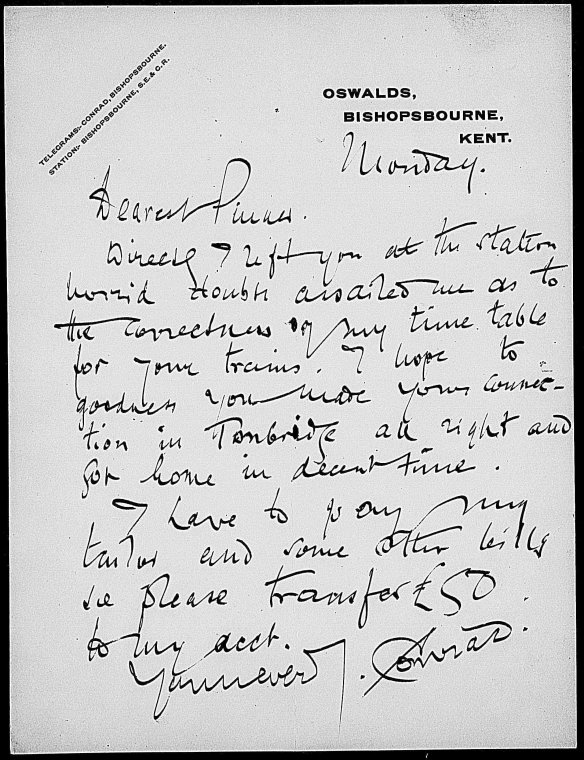 TELEGRAMS:- CONRAD, BISHOPSBOURNE.
STATION:- BISHOPSBOURNE, S.E. & C.R.
OSWALDS,
BISHOPSBOURNE,
KENT.
Monday.
Dearest Pinker.
Directly I left you at the station
horrid doubts assailed me as to
the correctness of my time table
for your trains. I hope to
goodness you made your connec-
tion in Tonbridge all right and
got home in decent time.
I have to pay my
tailor and some other bills
so please transfer £50
to my acct.
Yours ever J. Conrad.